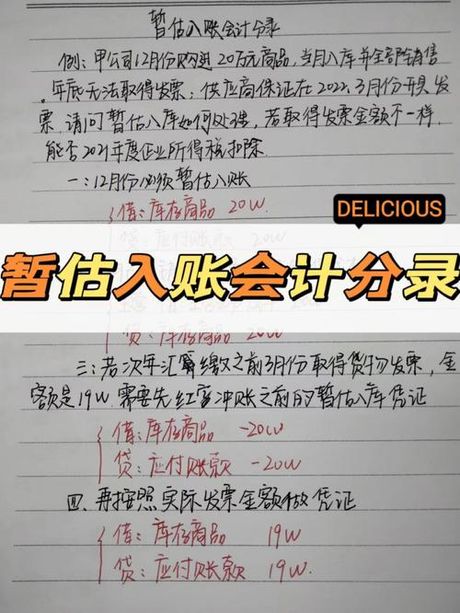 暂估入账会计分录
例:甲公司12月份购进20万元商品,当月入库并全部销售
年底无法取得发票;供应商保证在2022.3月份开具发
票.请问暂估入库如何处理,若取得发票金额不一样,
能否2021年度企业所得税扣除.
一:12月份必须暂估入账
借:库存商品 20W.
DELICIOUS
暂估入账会计分录
贷:库存商品 20W
三:若次年汇算缴之前3月份取得货物发票,金
额是19W需要先红字冲账之前的暂估入库凭证
借:库存商品 -20W
贷:应付账款 -20W
四、再按照实际发票金额做凭证
借:库存商品 19W
贷:应付账款 19W.